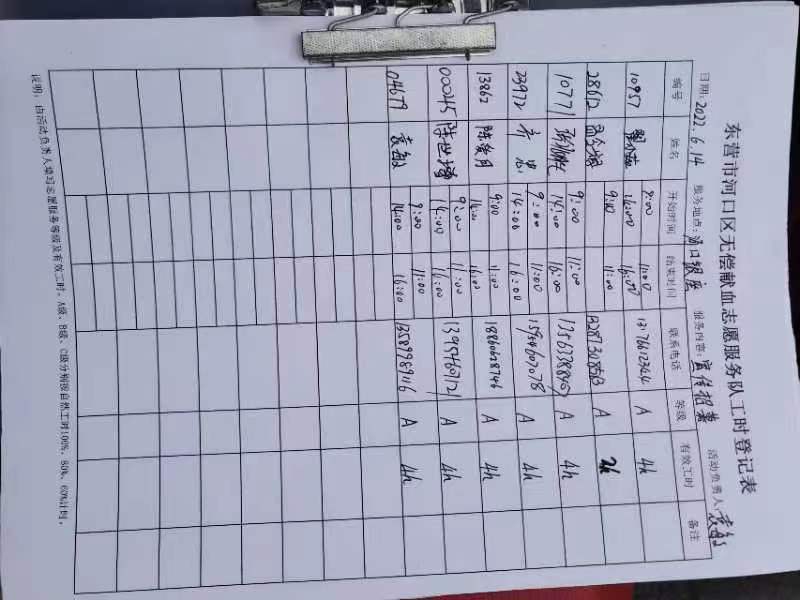 东营市河口区无偿献血志愿服务队工时登记表
日期:2022.6.14 服务地点:河口银座 服务内容:宣传招募 活动负责人:袁敏
编号 姓名 开始时间 结束时间 联系电话 等级 有效工时 备注
10957 9:00 11:00 A 4h
14:00 16:00
28612 9:00 11:00 A 2h
10771 9:00 11:00 A 4h
14:00 16:00
23972 齐思 9:00 11:00 15954607078 A 4h
14:00 16:00
13862 陈爱月 9:00 11:00 18860628746 A 4h
14:00 16:00
000245 陈世增 9:00 11:00 A 4h
14:00 16:00
04679 袁敏 9:00 11:00 13589989116 A 4h
14:00 16:00
说明:由活动负责人填写志愿服务等级及有效工时。A级、B级、C级分别按自然工时100%、80%、60%计划。